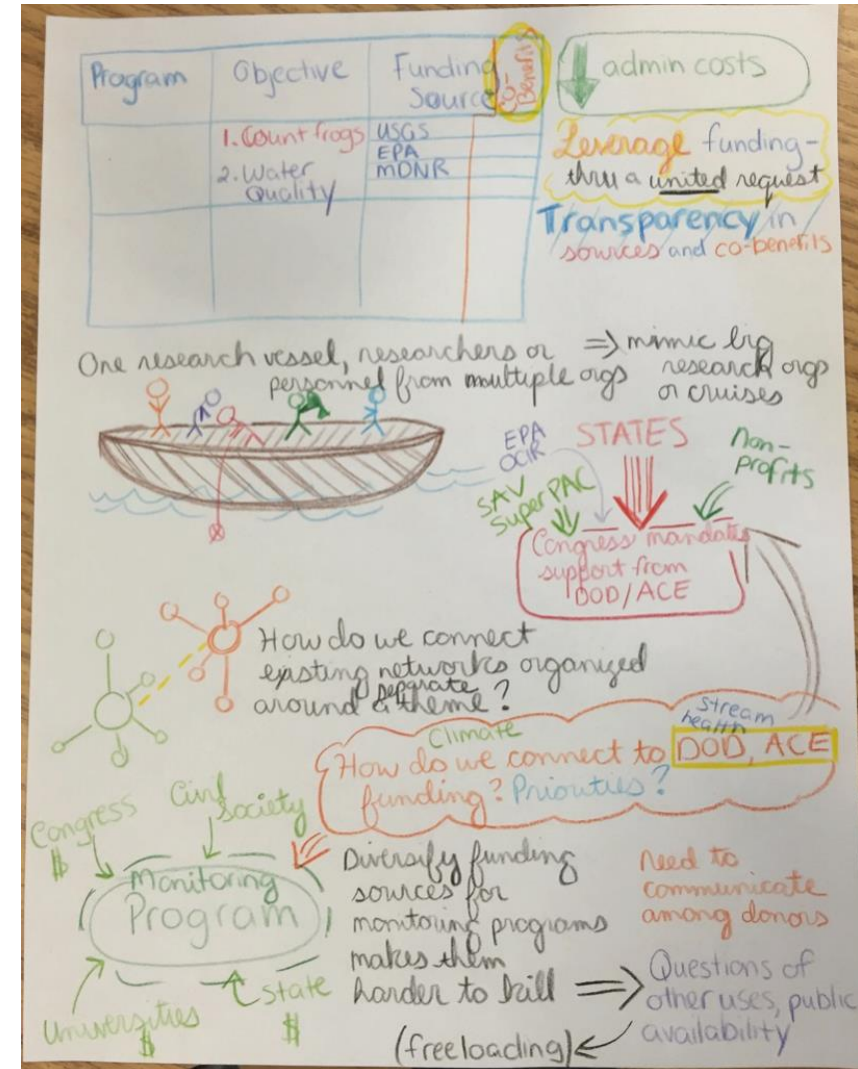 Program
Objective
Funding
Source
Co-
Benefits
1. Count frogs
2. Water
Quality
USGS
EPA
MDNR
admin costs
Leverage funding -
thru a united request
Transparency in
sources and co-benefits
One research vessel, researchers or
personnel from multiple orgs
=> mimic big
research orgs
or cruises
EPA
STATES
Non-
profits
SAV
Super PAC
Congress mandates
support from
DOD/ACE
How do we connect
existing networks organized
separate
around a theme?
Climate
stream
health
How do we connect to DOD, ACE
funding? Priorities?
Congress
$
Civil
Society
Monitoring
Program
Universities
$
State
$
Diversify funding
sources for
monitoring programs
makes them
harder to kill =>
need to
communicate
among donors
Questions of
other uses, public
availability
(freeloading)